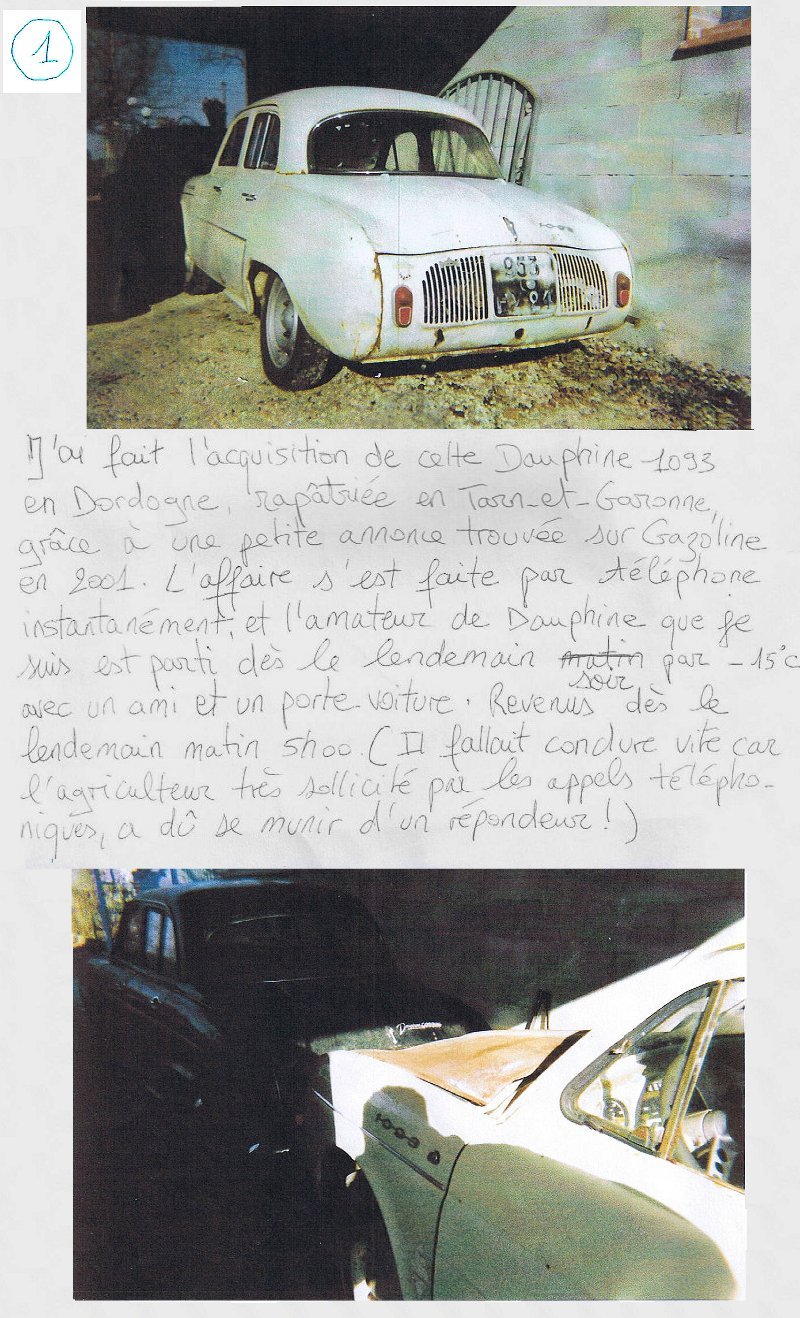 1
1093
953
84
J'ai fait l'acquisition de cette Dauphine 1093
en Dordogne, rapâtriée en Tarn-et-Garonne,
grâce à une petite annonce trouvée sur Gazoline
en 2001. L'affaire s'est faite par téléphone
instantanément, et l'amateur de Dauphine que je
suis est parti dès le lendemain matin par -15°c
soir
avec un ami et un porte-voiture. Revenus dès le
lendemain matin 5h00. (Il fallait conclure vite car
l'agriculteur très sollicité par les appels télépho-
niques, a dû se munir d'un répondeur!)
1093